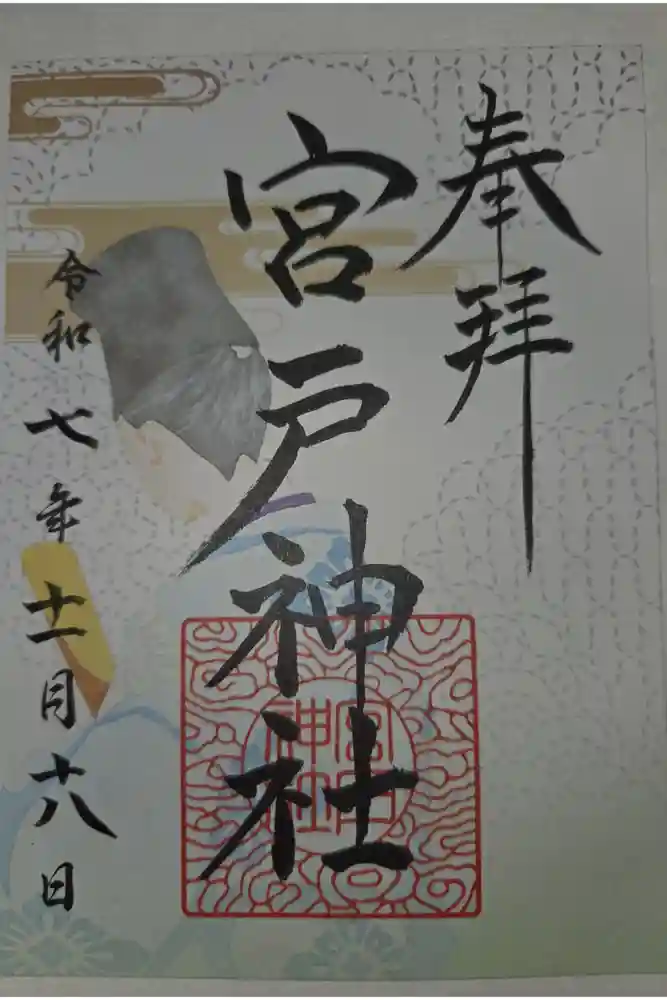 奉拝
宮戸神社
宮戸
神社
令和七年十一月十八日